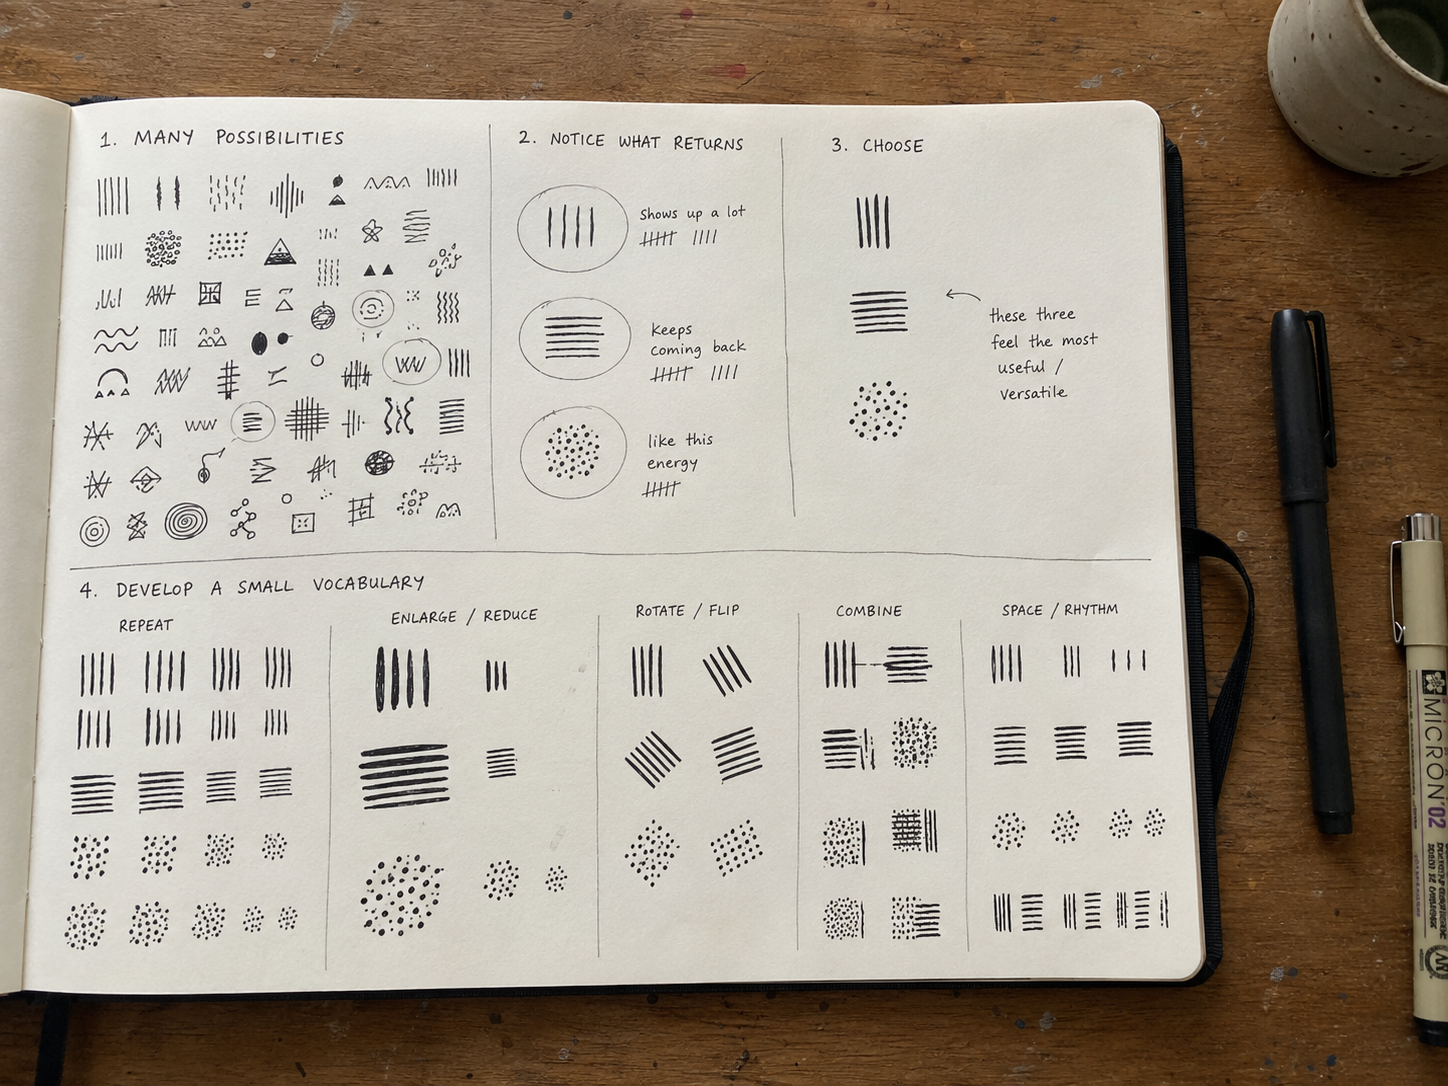 1. MANY POSSIBILITIES
2. NOTICE WHAT RETURNS
shows up a lot
keeps
coming back
like this
energy
3. CHOOSE
these three
feel the most
useful /
versatile
4. DEVELOP A SMALL VOCABULARY
REPEAT
ENLARGE / REDUCE
ROTATE / FLIP
COMBINE
SPACE / RHYTHM
MICRON 02